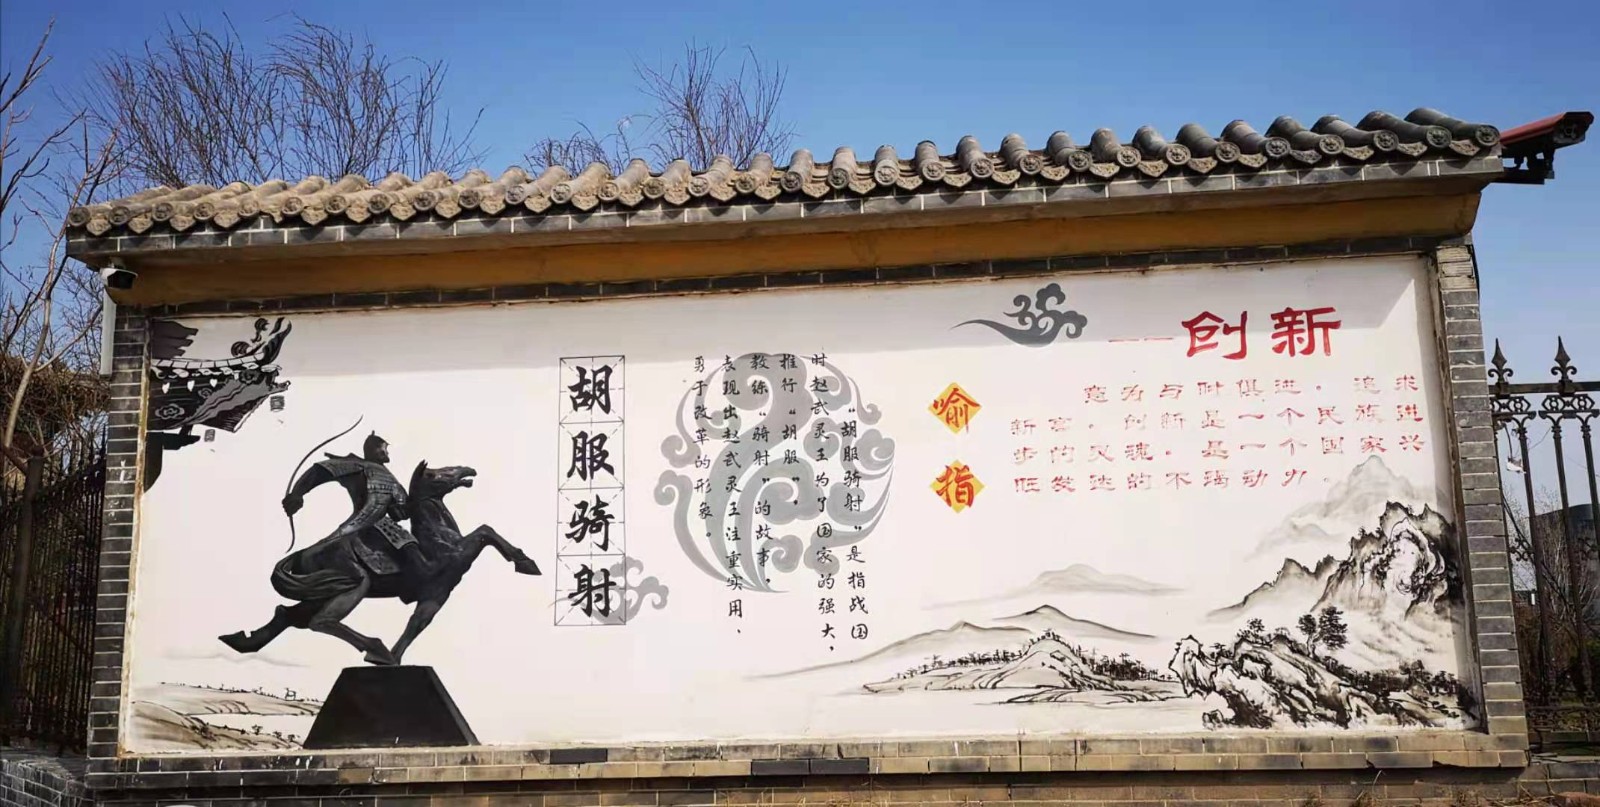 胡服骑射
“胡服骑射”是指战国
时赵武灵王为了国家的强大，
推行“胡服”，
教练“骑射”的故事，
表现出赵武灵王注重实用、
勇于改革的形象。
——创新
喻指
意为与时俱进，追求
新高。创新是一个民族进
步的灵魂，是一个国家兴
旺发达的不竭动力。